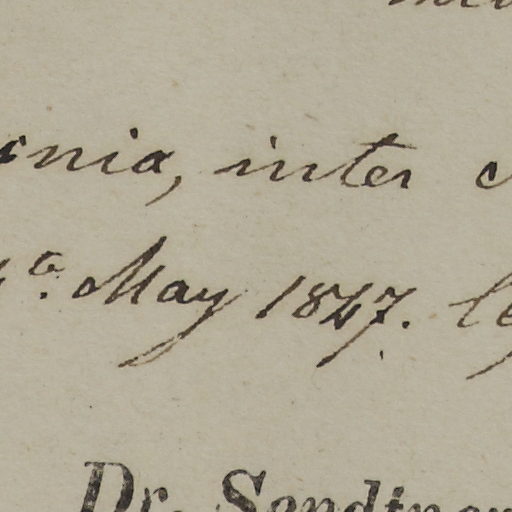 inia, inter
May 1847. le
Dr. Sendtner